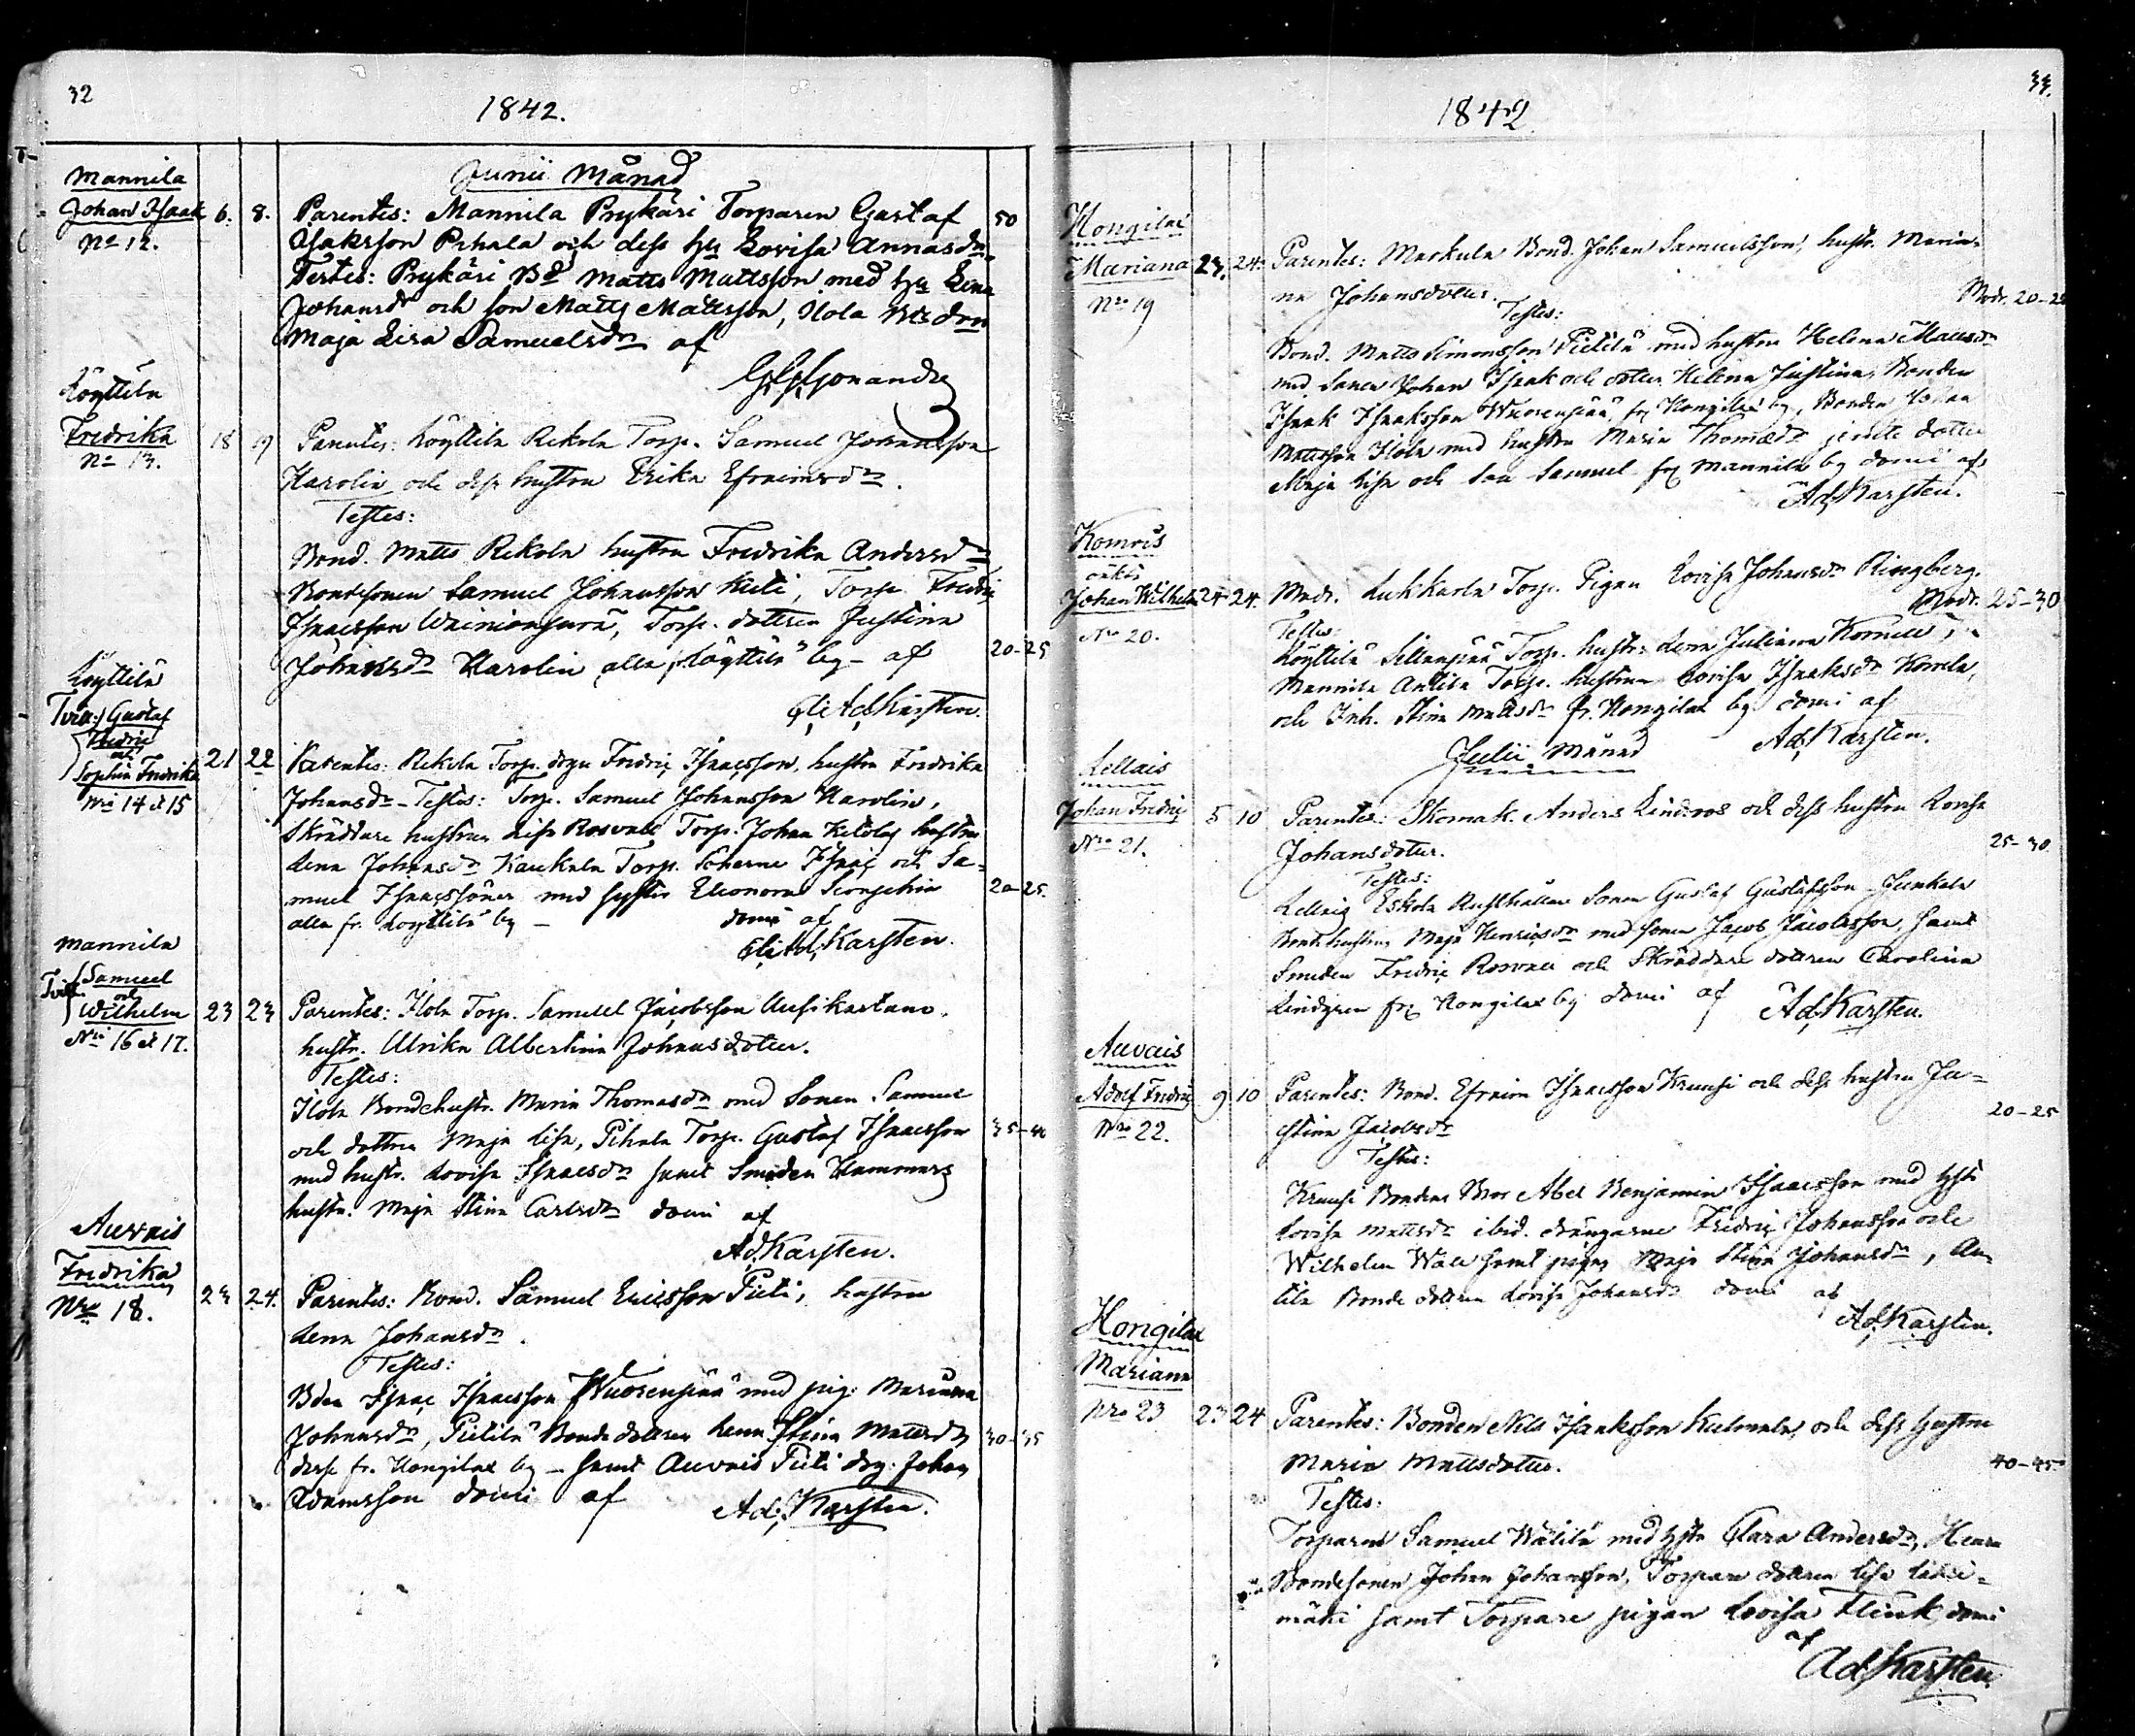 32
1842.
Junii Månad
Mannila
Johan Isaak 6. 8.
No 12.
Parentes: Mannila Prykäri Torparen Gustaf 50
Isaksson Pihala och dess hu Lovisa Annasdr
Testes: Prykäri Bd Matts Mattsson med hu Lena
Johansdr och son Matts Mattsson, Ilola Bdsdrn
Maja Lisa Samuelsdr af
Löyttilä
Fredrika 18 19
No 13.
Parentes: Löyttilä Rekola Torp. Samuel Johansson
Harolin och dess hustru Erika Efraimsdr.
Testes:
Bond. Matts Rekola hustru Fredrika Andersdr
Bondesonen Samuel Johansson, Torp. Fredric
Isaacsson Wainionperä, Torp. dottren Justina
Johansdr Harolin alla fr. Löyttilä by - af 20-25
Ad. Karsten.
Löyttilä
Tvill: Gustaf
Fredric
och
Sophia Fredrika 21 22
Nri 14 et 15
Parentes: Rekola Torp. Fredric Isaacsson, hustru Fredrika
Johansdr - Testes: Torp. Samuel Johansson Harolin,
Skräddare hustrun Lisa Rosvall Torp. Johan Ketolas hustru
Lena Johansdr Kaukola Torp. Sönerne Isaac och Sa-
muel Isaacssöner med syster Eleonora 20-25.
alla fr. Löyttilä by - domi af
Ad. Karsten.
Mannila
Tvill. Samuel
och
Wilhelm 23 23
Nri 16 et 17.
Parentes: Ilola Torp. Samuel Jacobsson Uusikartano.
hustr. Ulrika Albertina Johansdotter.
Testes:
Ilola Bondehustr. Maria Thomasdr med Sonen Samuel
och dottren Maja Lisa, Pihala Torp. Gustaf Isaacsson 35-40
med hustr. Lovisa Isaacsdr samt Smeden Hammars
hustr. Maja Stina Carlsdr domi af
Ad. Karsten.
Auvais
Fredrika 23 24.
Nro 18.
Parentes: Bond. Samuel Ericsson Piiti, hustru
Lena Johansdr.
Testes:
Bden Isaac Isaacsson Wuorenpää med pig. Mariana
Johansdr, Pietilä Bonde dottren Lena Stina Mattsdr 30-35
desse fr. Hongilax by - samt Auvais Piiti drg. Johan
Adamsson domi af
Ad. Karsten.
33.
1842
Hongilax
Mariana 23. 24.
Nro 19
Parentes: Markula Bond. Johan Samuelsson, hustr. Maria-
na Johansdotter. Modr. 20-25
Testes:
Bond. Matts Simonsson Pietilä med hustru Helena Mattsdr
med Sonen Johan Isaak och dotter Helena Justina, Bonden
Isaak Isaksson Wuorenpää, frn Hongilax by, Bonden Johan
Mattsson Ilola med hustru Maria Thomasdr jemte dotter
Maja Lisa och son Samuel frn Mannila by domi af
Ad. Karsten.
Komois
oäkta
Johan Wilhelm 24 24.
Nro 20.
Modr. Lukkarla Torp. Pigan Lovisa Johansdr Ringberg.
Modr. 25-30
Testes:
Löyttilä Sillanpää Torp. hustr. Lena Juliana,
Mannila Anttila Torp. hustrun Lovisa Isaksdr,
och Inh. Stina Mattsdr fr. Hongilax by domi af
Ad. Karsten.
Julii Månad
Lellais
Johan Fredric 5 10
Nro 21.
Parentes: Skomak. Anders Lindroos och dess hustru Lovisa
Johansdotter. 25-30.
Testes:
Lellais Eskola Rusthållare Sonen Gustaf Gustafsson Junkola
Bondehustru Maja Henricsdr med sonen Jacob Jacobsson, samt
Smeden Fredric Rosvall och Skräddare dottren Carolina
Lindgren frn Hongilax by domi af Ad. Karsten.
Auvais
Adolf Fredric 9 10
Nro 22.
Parentes: Bond. Efraim Isaacsson Kruusi och dess hustru Ju-
stina Jacobsdr 20-25
Testes:
Kruusi Bondens Bror Abel Benjamin Isaacsson med hstr
Lovisa Mattsdr ibid. drängarne Fredric Johansson och
Wilhelm Wall samt pigan Maja Stina Johansdr, An-
tila Bonde dottren Lovisa Johansdr domi af
Ad. Karsten.
Hongilax
Mariana
Nro 23 23 24
Parentes: Bonden Nils Isaksson Kulmala, och dess hustru
Maria Mattsdotter. 40-45
Testes.
Torparen Samuel Wälilä med hstr Clara Andersdr,
Bondesonen Johan Johansson, Torpare dottren Lisa
mäki samt Torpare pigan Lovisa Flink domi
af
Ad. Karsten.